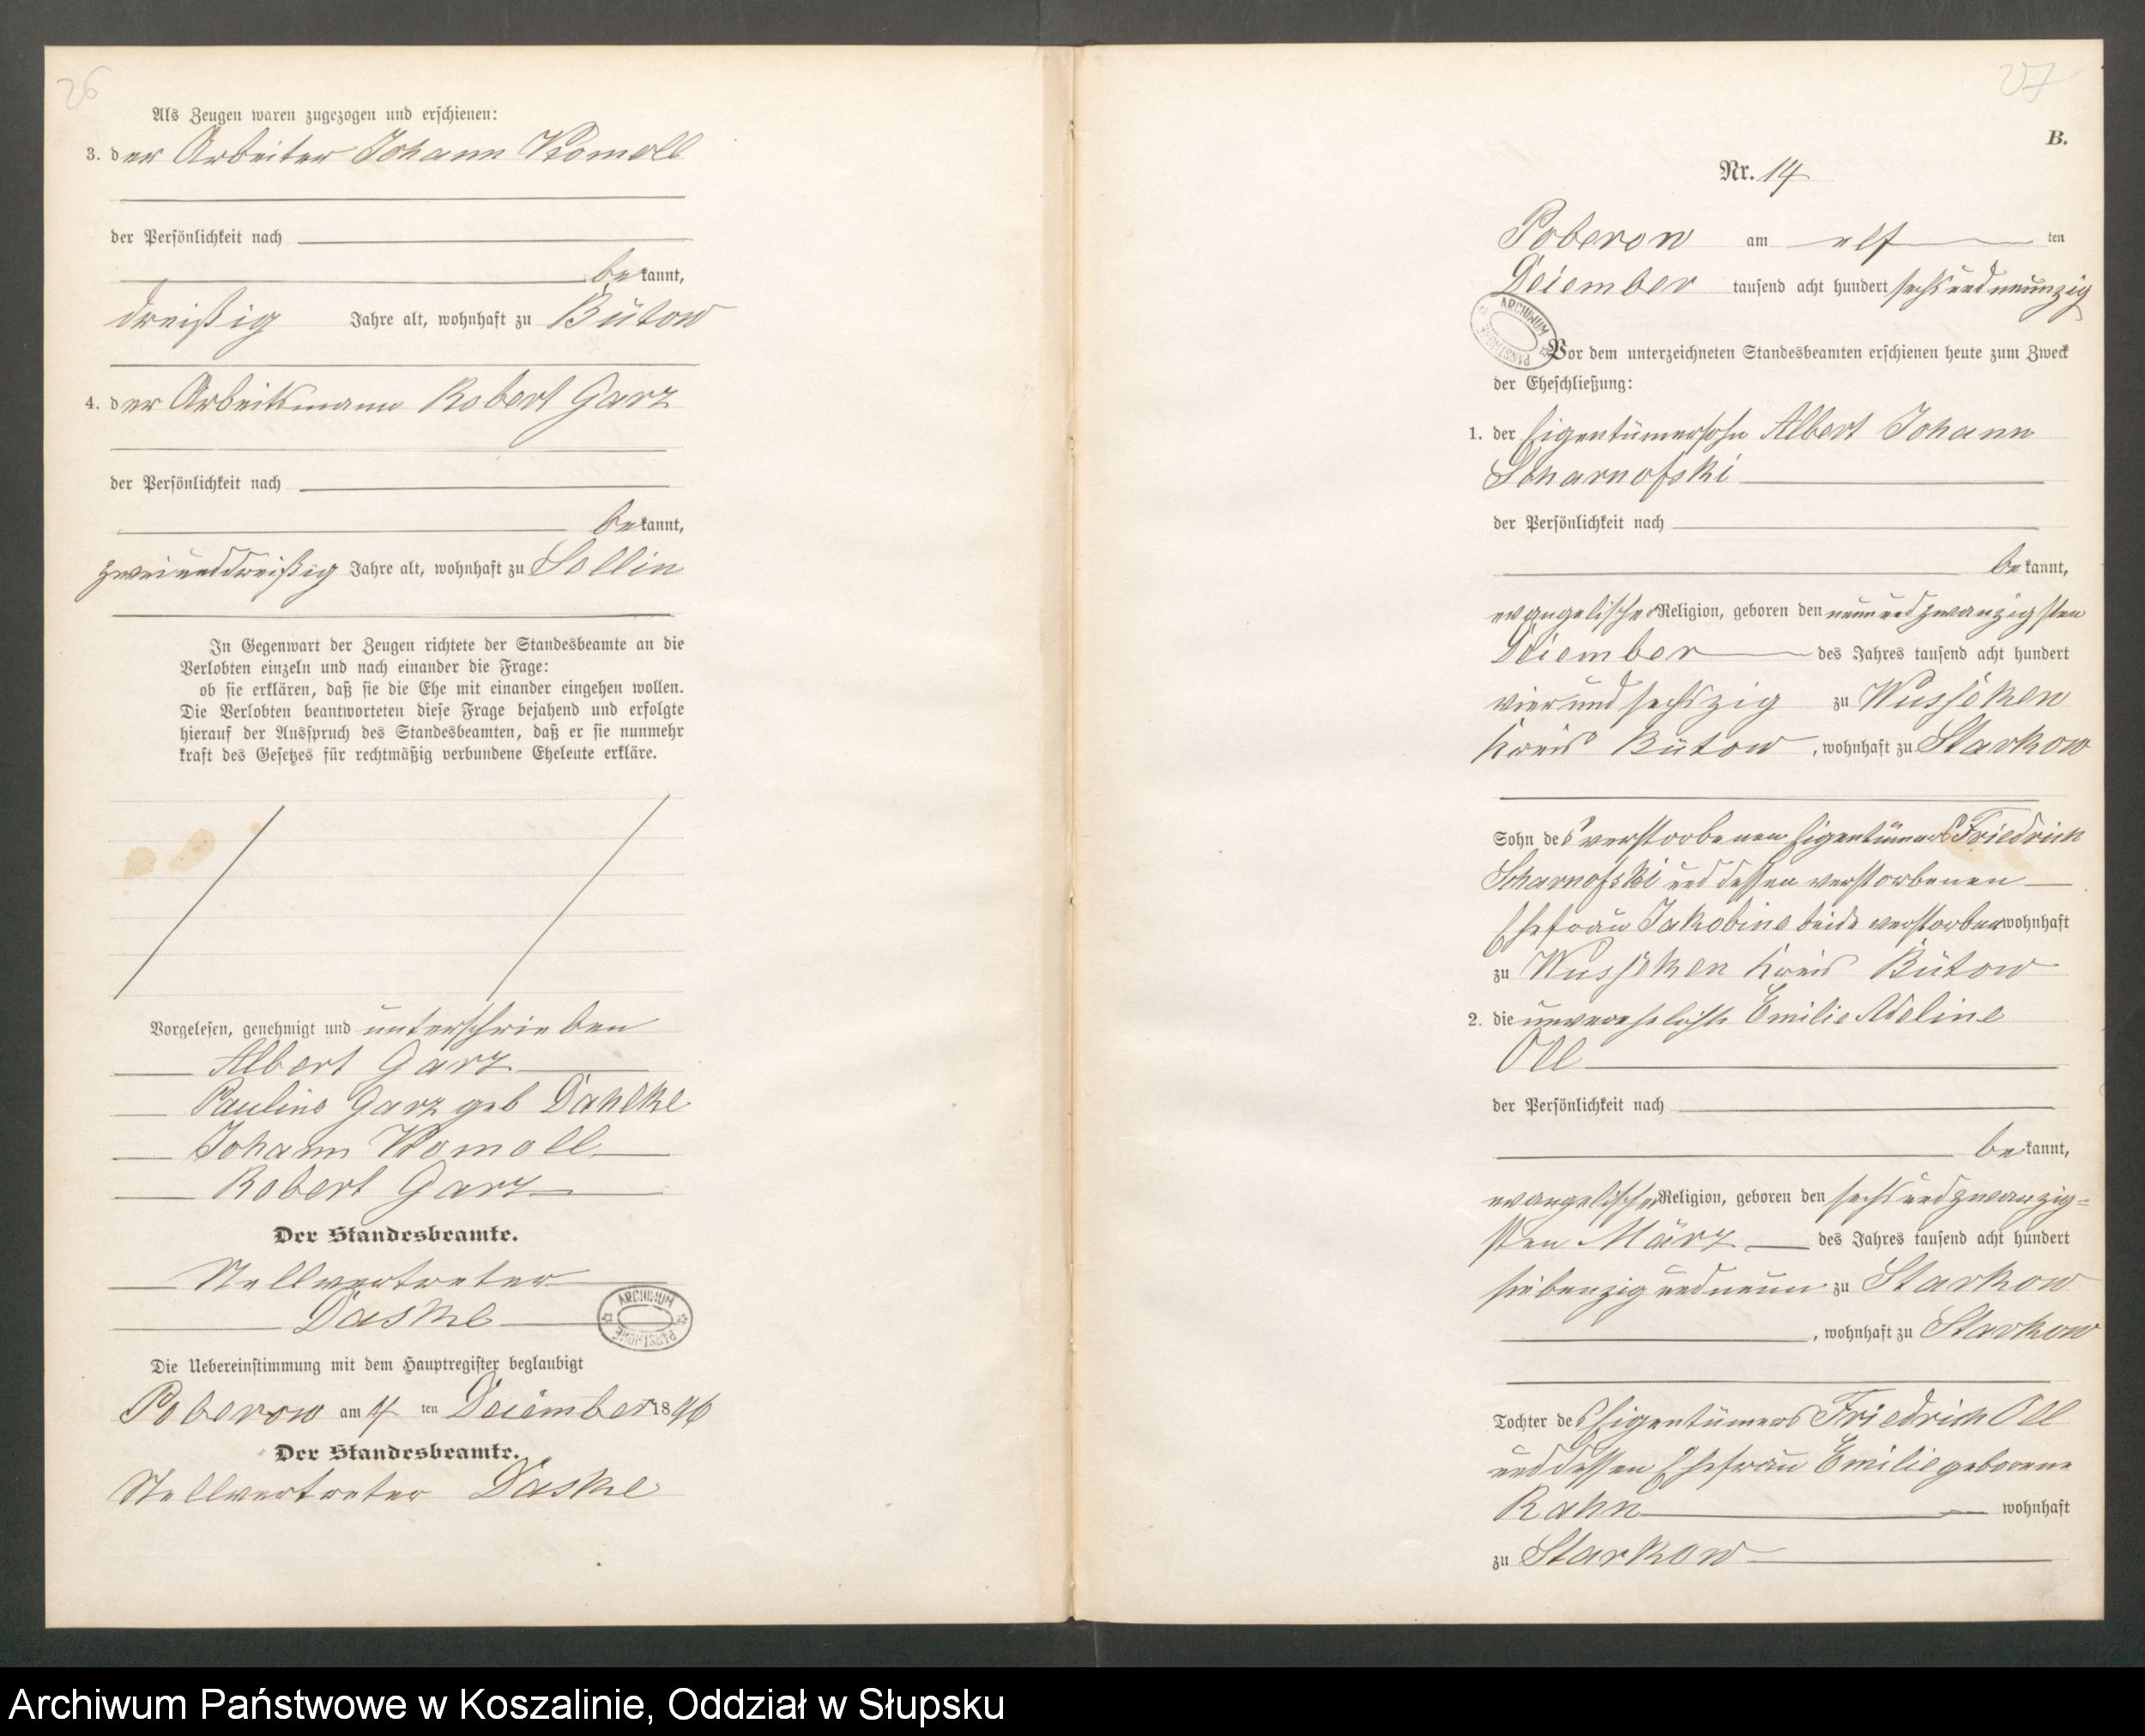 26
Als Zeugen waren zugezogen und erschienen:
3. der Arbeiter Johann Komoll
der Persönlichkeit nach
bekannt,
dreißig Jahre alt, wohnhaft zu Bütow
4. der Arbeitsmann Robert Garz
der Persönlichkeit nach
bekannt,
zweiunddreißig Jahre alt, wohnhaft zu Sellin
In Gegenwart der Zeugen richtete der Standesbeamte an die
Verlobten einzeln und nach einander die Frage:
ob sie erklären, daß sie die Ehe mit einander eingehen wollen.
Die Verlobten beantworteten diese Frage bejahend und erfolgte
hierauf der Ausspruch des Standesbeamten, daß er sie nunmehr
kraft des Gesetzes für rechtmäßig verbundene Eheleute erkläre.
Vorgelesen, genehmigt und unterschrieben
Albert Garz
Pauline Garz geb Dahlke
Johann Komoll
Robert Garz
Der Standesbeamte.
Stellvertreter
Daske
ARCHIWUM PAŃSTWOWE
Die Uebereinstimmung mit dem Hauptregister beglaubigt
Poberow am 4 ten Dezember 1896
Der Standesbeamte.
Stellvertreter Daske
27
B.
Nr. 14
Poberow am elf ten
Dezember tausend acht hundert sechsundneunzig
ARCHIWUM PAŃSTWOWE
Vor dem unterzeichneten Standesbeamten erschienen heute zum Zweck
der Eheschließung:
1. der Eigentümersohn Albert Johann
Scharnofski
der Persönlichkeit nach
bekannt,
evangelischer Religion, geboren den neunundzwanzigsten
Dezember des Jahres tausend acht hundert
vierundsechszig zu Wusseken
Kreis Bütow, wohnhaft zu Starkow
Sohn des verstorbenen Eigentümers Friedrich
Scharnofski und dessen verstorbenen
Ehefrau Jakobine beide verstorben wohnhaft
zu Wusseken Kreis Bütow
2. die unverehelichte Emilie Adeline
Oll
der Persönlichkeit nach
bekannt,
evangelischer Religion, geboren den sechsundzwanzig=
sten März des Jahres tausend acht hundert
siebenzigundneun zu Starkow
, wohnhaft zu Starkow
Tochter des Eigentümers Friedrich Oll
und dessen Ehefrau Emilie geborene
Rahn wohnhaft
zu Starkow
Archiwum Państwowe w Koszalinie, Oddział w Słupsku